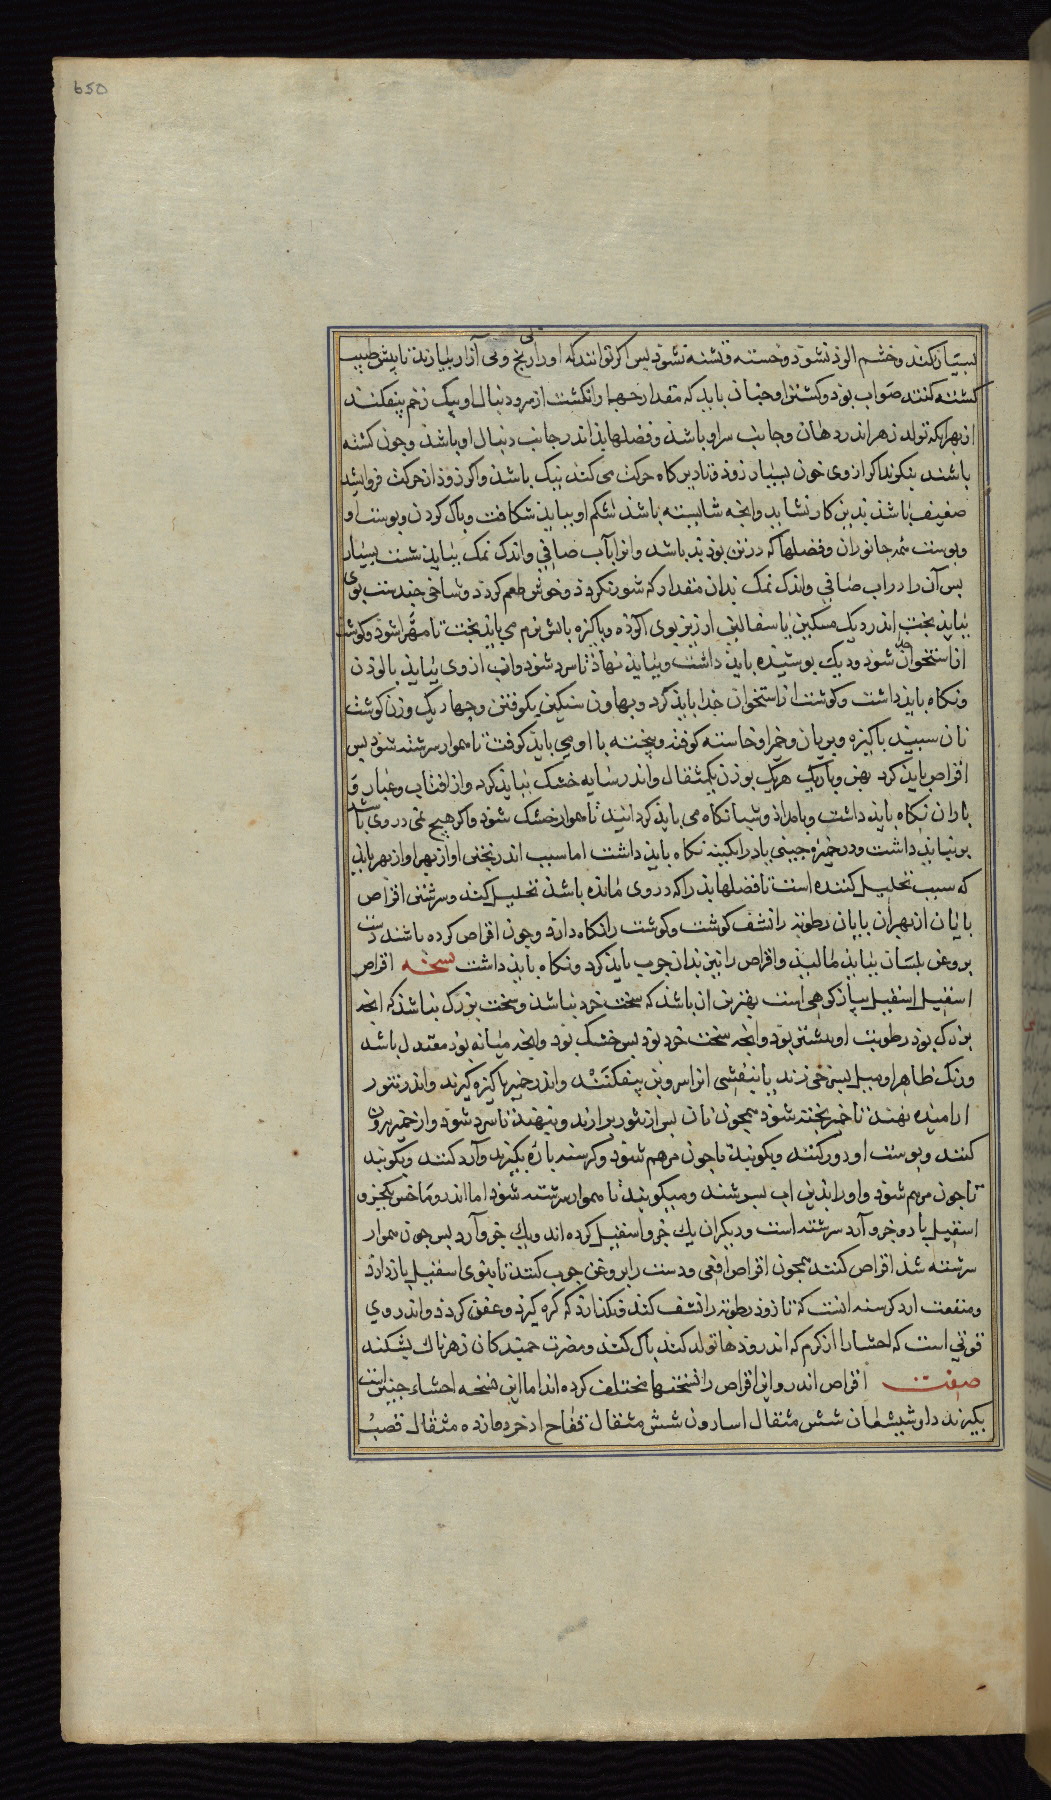 650
بسیار نکند و خشم الوذ نشود و خسته و تشنه نشود پس اگر توانند که او را بی رنج و بی آزار بیارند تا پیش طبیب
کشته کنند صواب بوذ و کشتن او چنان باید که مقدار چهار انگشت از سر و دنبال او بیک زخم بیفکنند
از بهر انکه تولد زهر اندر دهان و جانب سر او باشذ و فضلها بذ اندر جانب دنبال او باشذ و چون کشته
باشند بنکرند اکر از وی خون بسیار روذ و تا دیرکاه حرکت می کند نیک باشذ و اکر زوذ از حرکت فرو ایستد
ضعیف باشذ بدین کار نشاید و انچه شایسته باشذ شکم او بباید شکافت و پاک کردن و پوست او
و پوست همه جانوران و فضلها که در تن بوذ بد باشد و انرا بآب صافی و اندک نمک بباید شست بسیار
پس آن را در اب صافی و اندک نمک بدان مقدار که شور نکردد و خوش طعم کردد و شاخی چند شبت بوی
بباید پخت اندر دیک مسکین یا سفالین ارزیز بوی اندوده و پاکیزه باتش نرم می باید پخت تا مهرا شوذ و کوشت
از استخوان جدا شود و دیک پوشیده باید داشت و بباید نهاذ تا سرد شوذ و اب از وی بباید پالوذن
و نکاه باید داشت و کوشت از استخوان جدا باید کرد و بهاون سنکین بکوفتن و چهار یک وزن کوشت
نان سپید پاکیزه و بریان و خمیر او خاسته کوفته و بیخته با او می باید کوفت تا هموار سرشته شود پس
اقراص باید کرد بهن و باریک هریک بوزن یکمثقال و اندر سایه خشک بباید کرد و از افتاب و غبار و
باران نکاه باید داشت و بامداد و شبانکاه می باید کردانید تا هموار خشک شود و اکر هیچ نمی در وی باشد
بر نباید داشت و در خنوره چینی یا در ابکینه نکاه باید داشت اما سبب اندر پختن او از بهر او از بهر ابدانی
که سبب تحلیل کننده است تا فضلها بذ را که در وی مانده باشذ تحلیل کند و سرشتن اقراص
با نان از بهر ان با نان رطوبت را نشف کوشت و کوشت را نکاه دارد و چون اقراص کرده باشند دست
بروغن بلسان بباید مالیذ و اقراص را نیز بدان چوب باید کرد و نکاه باید داشت نسخه اقراص
اسقیل اسقیل پیاز کوهی است بهترین ان باشذ که سخت خرد نباشذ و سخت بزرک نباشذ که انچه
بزرک بوذ رطوبت او بیشتر بوذ و انچه سخت خرد بوذ بس خشک بوذ و انچه میانه بوذ معتدل باشد
و رنک ظاهر او میل بسرخی زند یا ببنفشی انرا سر و بن بیفکنند و اندر خمیر پاکیزه کیرند و اندر تنور
ارامیده نهند تا خمیر پخته شوذ همچون نان پس از تنور برارند و بنهند تا سرد شوذ و از خمیر بیرون
کنند و پوست او دور کنند و بکوبند تا چون مرهم شوذ و کرسنه تازه بکیرند و آرد کنند و بکوبند
تا چون مرهم شوذ و او را بذین اب بسرشند و میکوبند تا هموار سرشته شوذ اما اندروماخس یکجزو
اسقیل با دو جزو آرد سرشته است و دیکران یک جزو اسقیل کرده اند و یک جزو آرد پس چون هموار
سرشته شذ اقراص کنند همچون اقراص افعی و دست را بروغن چوب کنند تا بتوی اسقیل باز دارد
و منفعت ارد کرسنه انست که تا زوذ رطوبت را نشف کند و نکذارد که کره کیرد و عفن کردذ و اندر وی
قوتی است که احشا را از کرم که اندر روذها تولد کند پاک کند و مضرت جمیدکان زهرناک بشکند
صفت اقراص اندرو این اقراص را نسختها مختلف کرده اند اما این نسخه احشاء چنین است
بکیرند دارشیشعان شش مثقال اسارون شش مثقال فقاح اذخر دوازده مثقال قصب